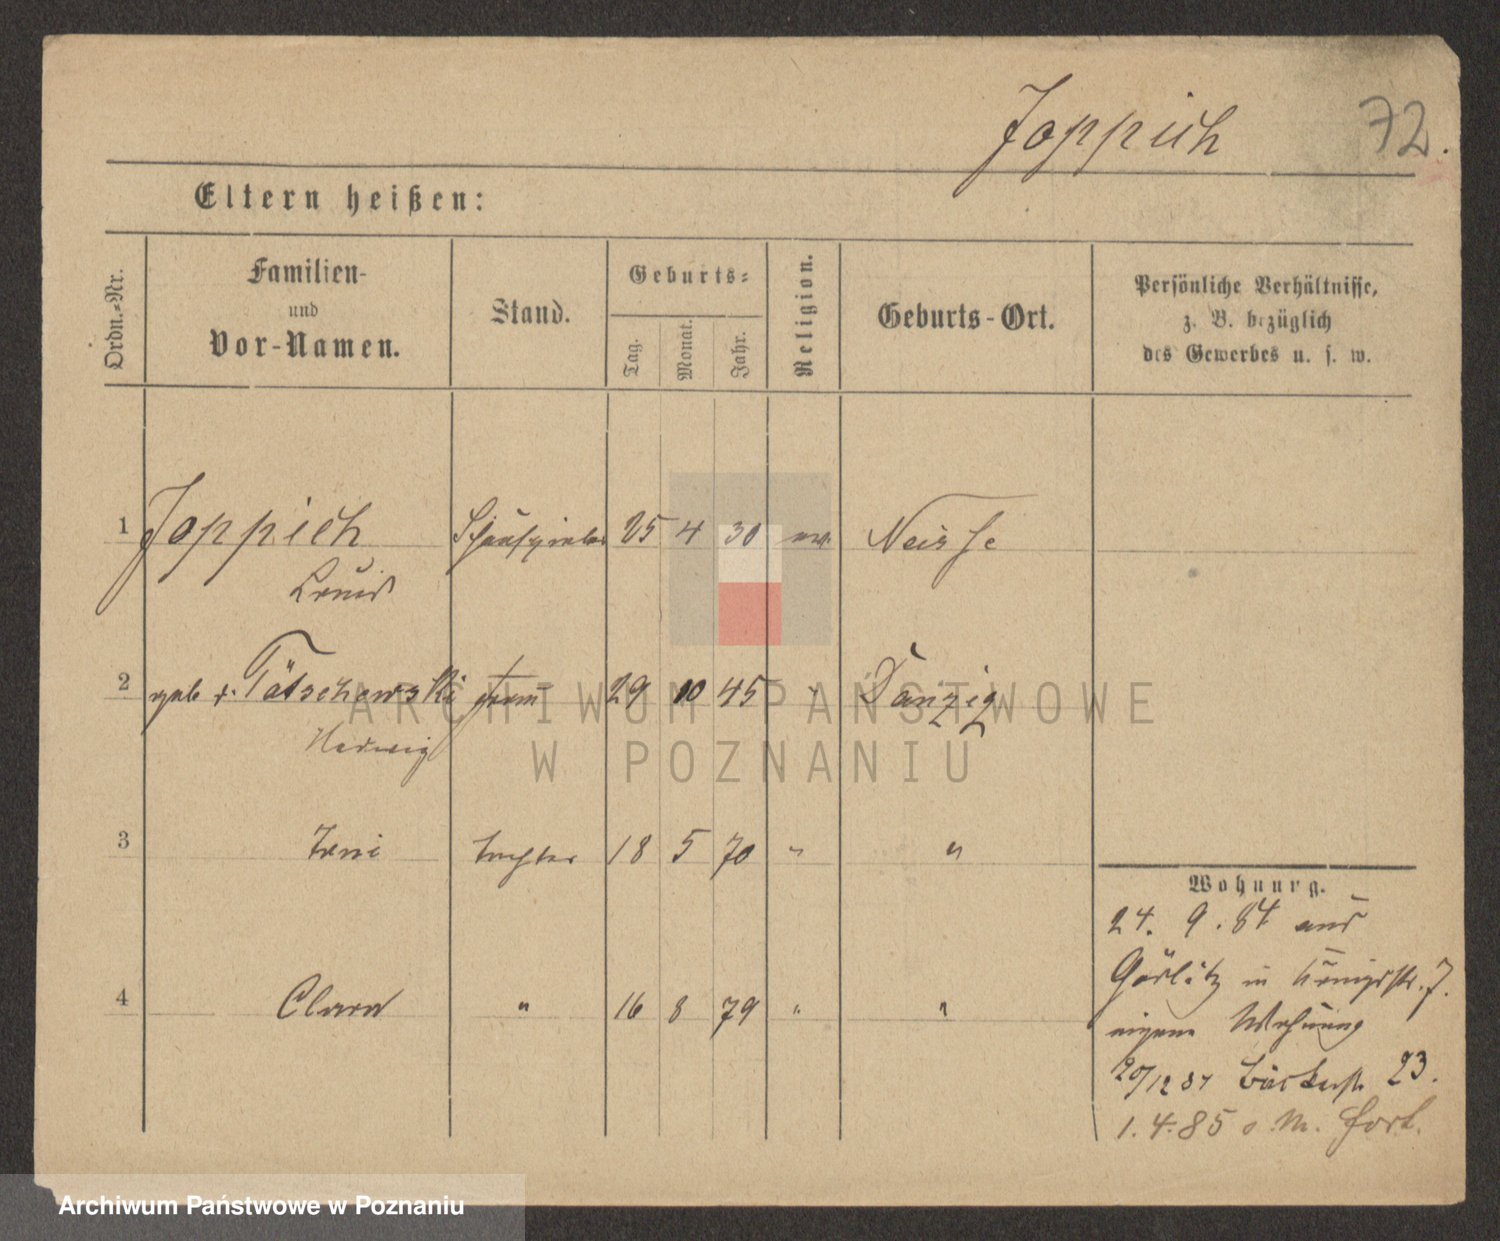 Joppich 72.
Eltern heißen:
Ordn.-Nr.
Familien-
und
Vor-Namen.
Stand.
Geburts-
Tag.
Monat.
Jahr.
Religion.
Geburts-Ort.
Persönliche Verhältnisse,
z. B. bezüglich
des Gewerbes u. s. w.
1 Joppich Schauspieler 25 4 30 ev. Neisse
Louis
2 geb v. Tätschowski Frau 29 10 45 " Danzig
Hedwig
3 Ireni Tochter 18 5 70 " "
4 Clara " 16 8 79 " "
Wohnung.
24. 9. 84 aus
Görlitz in Königsstr. 7.
eigene Wohnung
20/12 84 Bäckerst. 23.
1. 4. 85 o. M. fort.
ARCHIWUM PAŃSTWOWE
W POZNANIU
Archiwum Państwowe w Poznaniu